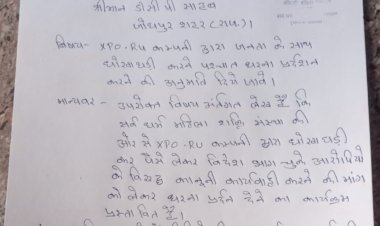 श्रीमान डीसीपी साहब
जोधपुर शहर (राज.)।
विषय:- XPO-RU कम्पनी द्वारा जनता के साथ
धोखाधड़ी करने पश्चात धरना प्रर्दशन
करने की अनुमति दिये जावे।
मान्यवर - उपरोक्त विषय अंर्तगत लेख है कि
सर्व धर्म महिला शक्ति संस्था की
ओर से XPO-RU कम्पनी द्वारा धोखाधड़ी
कर पैसे लेकर विदेश भाग चुके आरोपियो
के विरूद्ध कानूनी कार्यवाही करने की मांग
को लेकर धरना प्रर्दन देने का कार्यक्रम
प्रस्तावित है।